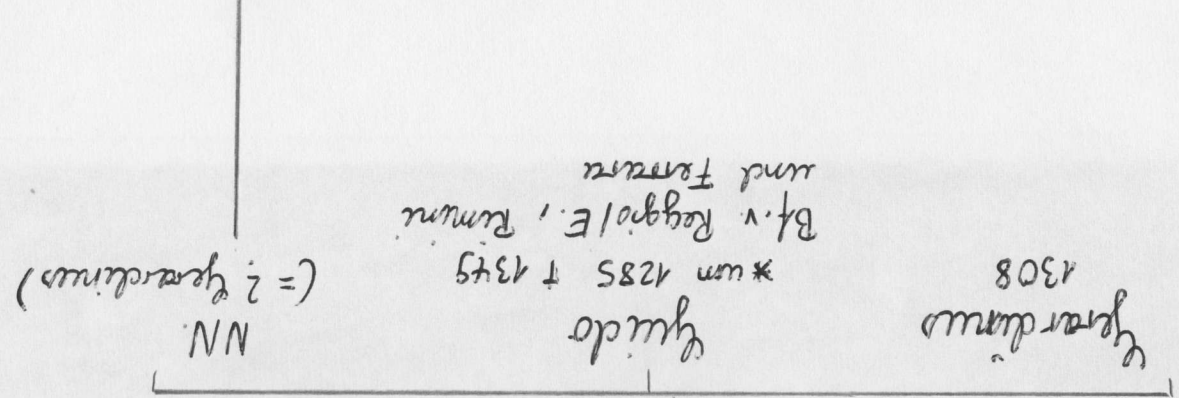 Gerardinus
1308
Guido
* um 1285 † 1349
Bf. v. Reggio/E., Rimini
und Ferrara
NN.
(= ? Gerardinus)